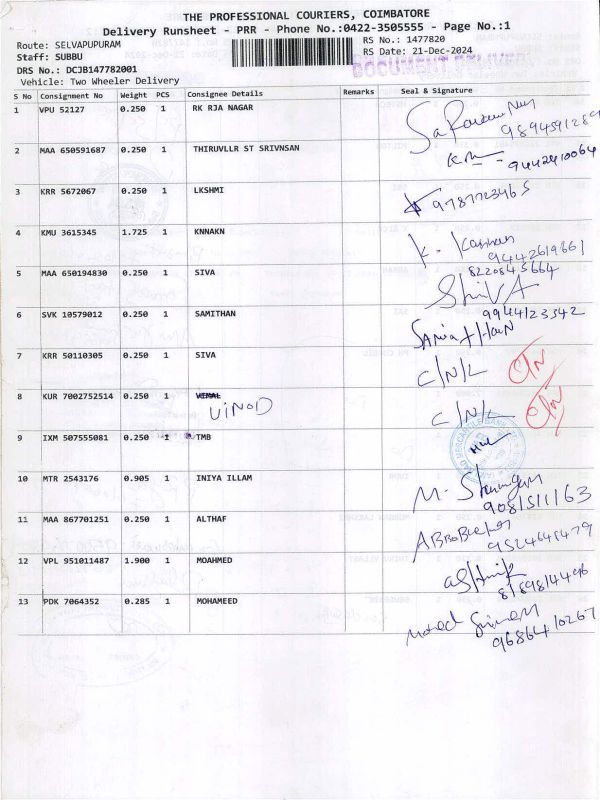 THE PROFESSIONAL COURIERS, COIMBATORE
Delivery Runsheet - PRR - Phone No.:0422-3505555 - Page No.:1
Route: SELVAPUPURAM
RS No.: 1477820
Staff: SUBBU
RS Date: 21-Dec-2024
DRS No.: DCJB147782001
Vehicle: Two Wheeler Delivery
S No Consignment No Weight PCS Consignee Details Remarks Seal & Signature
1 VPU 52127 0.250 1 RK RJA NAGAR
9894591289
2 MAA 650591687 0.250 1 THIRUVLLR ST SRIVNSAN
9442910064
3 KRR 5672067 0.250 1 LKSHMI 9787723465
4 KMU 3615345 1.725 1 KNNAKN K. Kannan
9442619661
5 MAA 650194830 0.250 1 SIVA 8220845664
ShivA
6 SVK 10579012 0.250 1 SAMITHAN 9944123342
7 KRR 50110305 0.250 1 SIVA C/N/L
8 KUR 7002752514 0.250 1 VINOD C/N/L
9 IXM 507555081 0.250 1 TMB
10 MTR 2543176 0.905 1 INIYA ILLAM
9081511163
11 MAA 867701251 0.250 1 ALTHAF
9524646479
12 VPL 951011487 1.900 1 MOAHMED
8189814496
13 PDK 7064352 0.285 1 MOHAMEED
9686410267